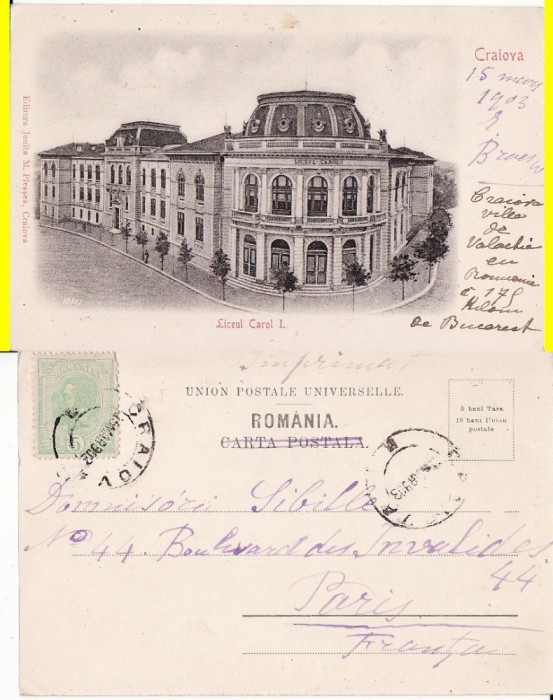 Craiova
15 mars
1903
Craiova
ville
de
Valachie
en
Roumanie
à 175
Kilom
de Bucarest
Editura Jonița M. Pleșșea, Craiova.
LICEUL CAROL I
Liceul Carol I.
Imprimat
UNION POSTALE UNIVERSELLE.
ROMÂNIA.
CARTA POSTALA.
5 bani Tara
10 bani Union
postale
CRAIOVA
Domnisórei Sibille
No 44. Boulevard des Invalides
44
Paris
Franța